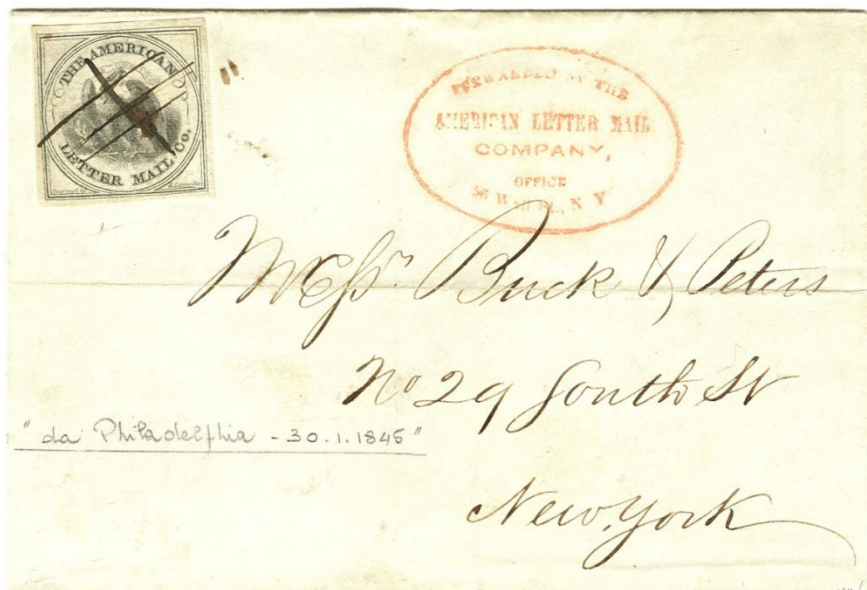 THE AMERICAN
LETTER MAIL Co.
FORWARDED BY THE
AMERICAN LETTER MAIL
COMPANY,
OFFICE
56 Wall St., N Y
Messrs. Buck & Peters
No 29 South St
" da Philadelphia - 30.1.1845 "
New York